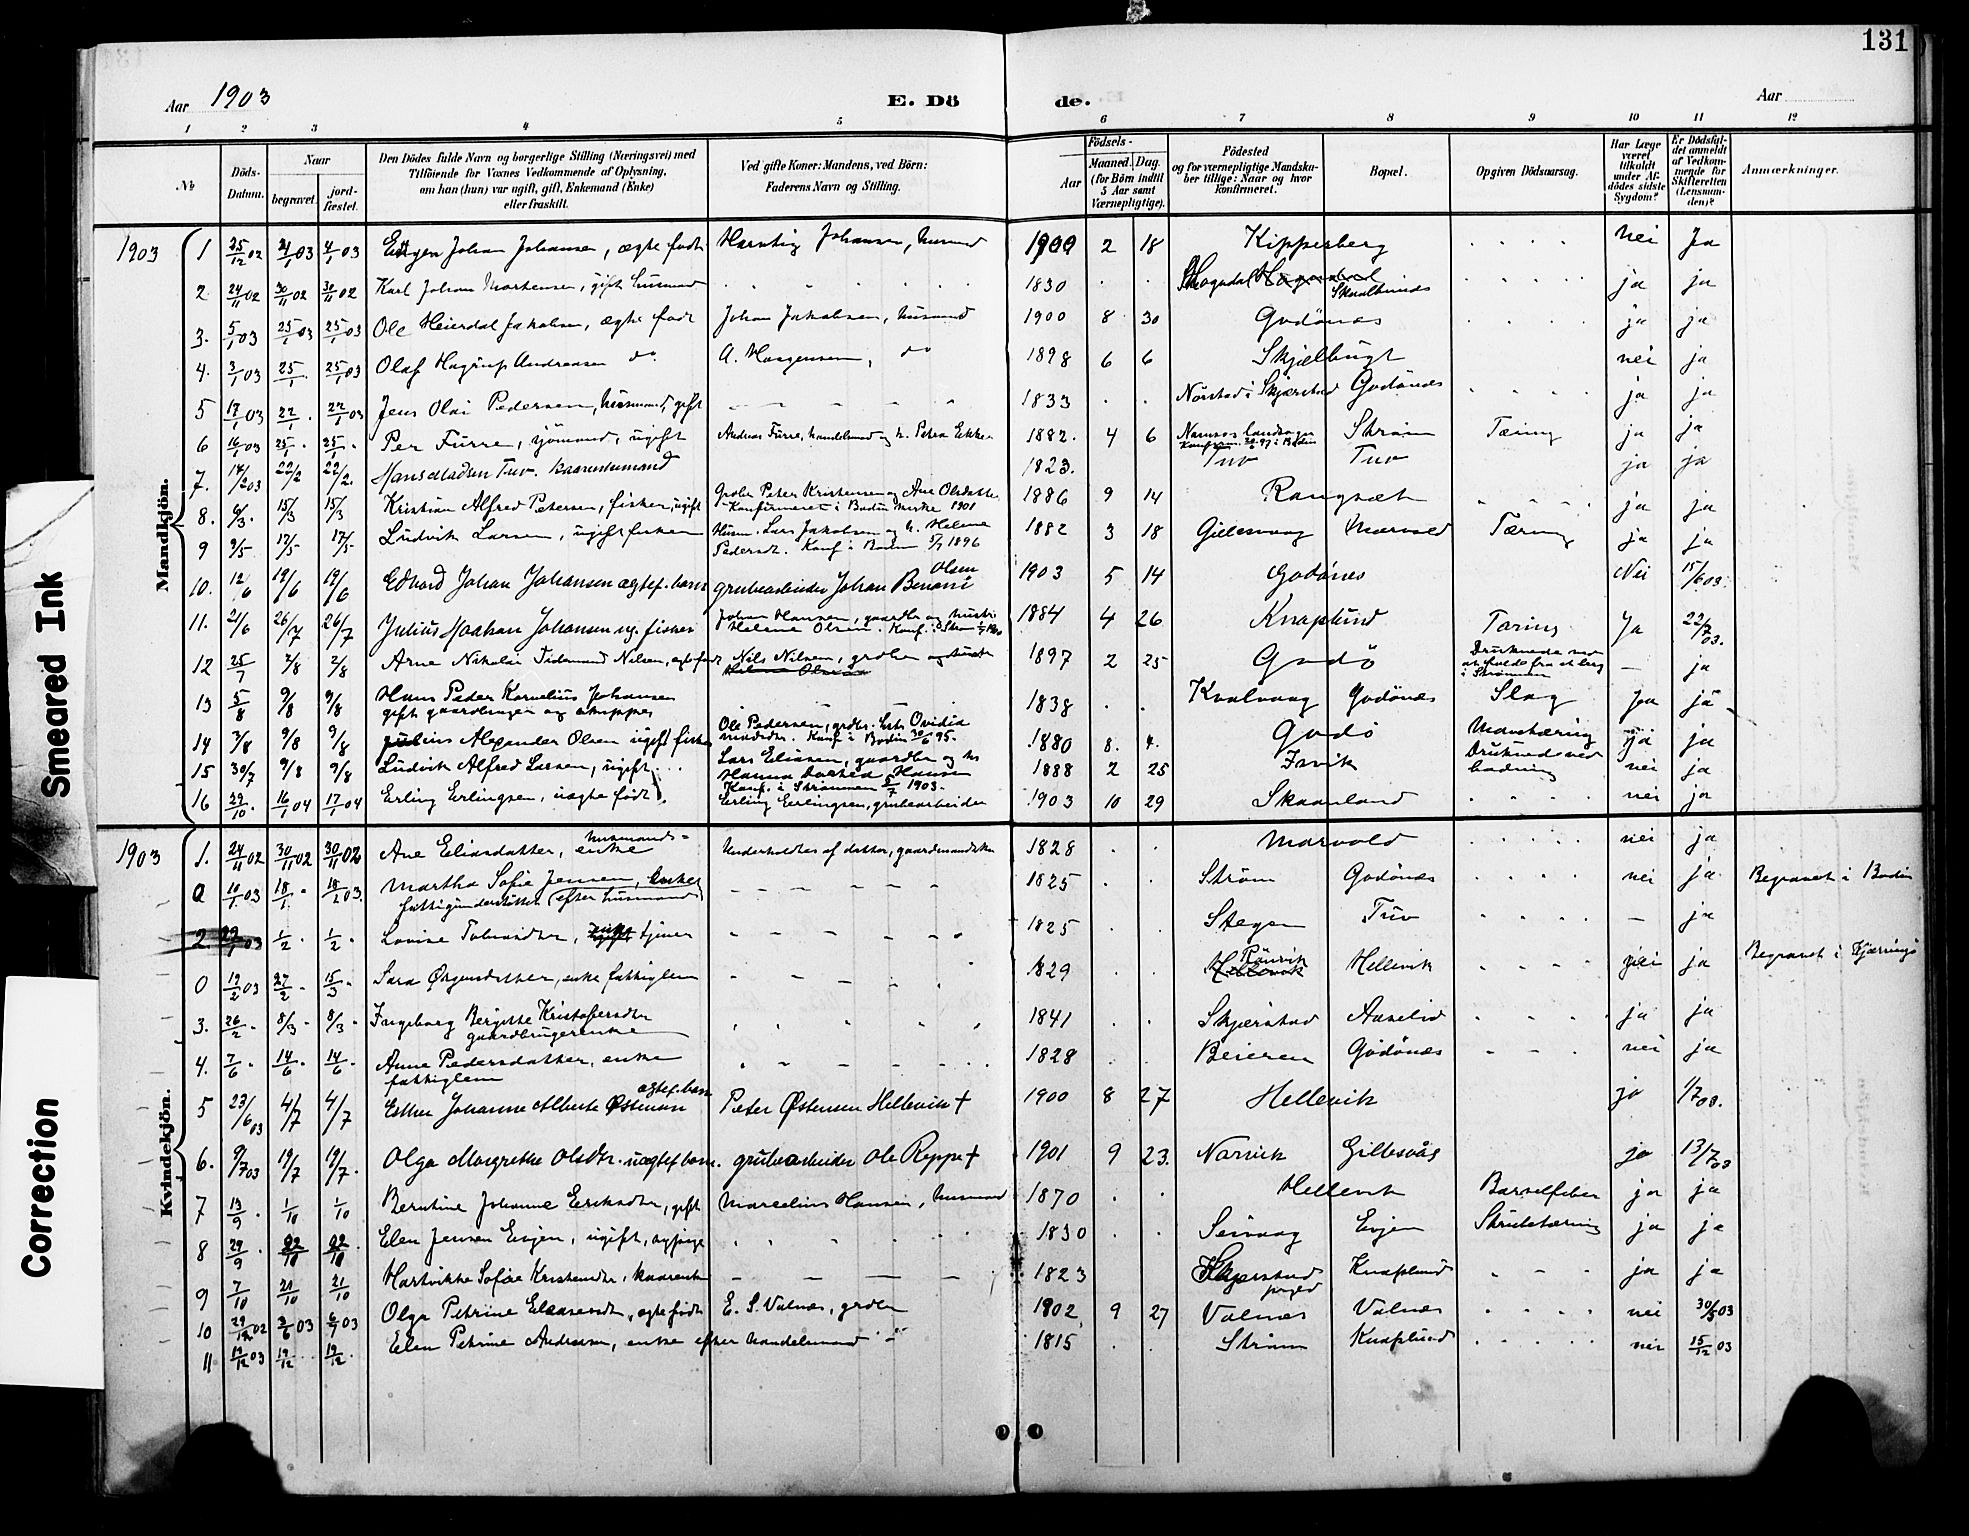 131
Aar 1903 E. Dö de. Aar
1 2 3 4 5 6 7 8 9 10 11 12
No Döds-Datum. Naar begravet. jord-fæstet. Den Dödes fulde Navn og borgerlige Stilling (Næringsvei) med Tilföiende for Voxnes Vedkommende af Oplysning, om han (hun) var ugift, gift, Enkemand (Enke) eller fraskilt. Ved gifte Koner: Mandens, ved Börn: Faderens Navn og Stilling. Födsels- Aar Maaned. Dag. (for Börn indtil 5 Aar samt Værnepligtige). Födested og for værnepligtige Mandska-ber tillige: Naar og hvor Konfirmeret. Bopæl. Opgiven Dödsaarsag. Har Læge været tilkaldt under Af-dödes sidste Sygdom? Er Dödsfal-det anmeldt af Vedkom-mende for Skifteretten (Lensman-den)? Anmærkninger.
Mandkjön.
1903 1 25/12 02 4/1 03 4/1 03 Johan Johansen, ægte født Johansen, husmd 1900 2 18 Kipperberg nei Ja
2 24/11 02 30/11 02 30/11 02 Karl Johan Mortensen, gift husmand 1830 Skaalbunes ja ja
3. 5/1 03 25/1 03 25/1 03 Ole Heierdal Jakobsen, ægte født Johan Jakobsen, husmd 1900 8 30 Godönes ja ja
4. 3/1 03 25/1 25/1 03 Olaf Hagrup Andreasen do A. Mogensen, do 1898 6 6 Skjælbugt nei ja
5 17/1 03 22/1 22/1 03 Jens Olai Pedersen, husmand, gift 1833 Nörstad i Skjærstad Godönes ja ja
6 16/1 03 25/1 25/1 Per Furre, sjömand, ugift Andreas Furre, handelsmd og h. Petra 1882. 4 6 Namsos landsogn Konfirm. i Bodin Ström Tæring ja ja
7. 14/2 03 22/2 22/2. Hans Madsen Tuv. kaarenkemand 1823. Tuv Tuv ja ja
8. 6/3. 15/3 15/3 Kristian Alfred Petersen, fisker, ugift Grdbr Peter Kristensen og Ane Olsdatter Konfirmeret i Bodin Kirke 1901 1886 9 14 Rangsæt ja ja
9 9/5 17/5 17/5 Ludvik Larsen, ugift fisker Husm. Lars Jakobsen og h. Helene Pedersdt. Konf i Bodin 5/7 1896 1882 3 18 Gillesvaag Marvold Tæring ja ja
10. 12/6 19/6 19/6 Edvard Johan Johansen ægtef. barn grubearbeider Johan Benoni Olsen 1903 5 14 Godönes Nei 15/6 03.
11. 21/6 26/7 26/7 Julius Johansen ug. fisker Johan Hansen, gaardbr og hustru Helene Olsen. Konf. i Ström 1900 1884 4 26 Knaplund Tæring Ja 22/7 03.
12 25/7 2/8 2/8 Arne Nikolai Tidemand Nilsen, egte født Nils Nilsen, grdbr 1897 2 25 Godö Druknede ved at falde fra et berg i Strömmen — ja
13 5/8 9/8 9/8 Hans Peder Kornelius Johansen gift gaardbruger og skipper 1838 Kvalvaag Godönes Slag Ja ja
14 3/8 9/8 9/8 Julius Alexander Olsen ugift fisker Ole Pedersen, grdbr. Ovidia Konf i Bodin 30/6 95. 1880 8. 4. Godö Mavetæring ja ja
15 30/7 9/8 9/8 Ludvik Alfred Larsen, ugift Lars Eliasen, gaardbr og h. Hanna Hansen Konf. i Strömmen 5/7 1903. 1888 2 25 Druknede ved badning nei ja
16 29/10. 16/1 04 17/1 04 Erling Erlingsen, uægte født Erling Erlingsen, grubearbeider 1903 10 29 Skaanland nei ja
Kvindekjön.
1903 1. 24/11 02 30/11 02 30/11 02 Ane Eliasdatter, husmands-enke Underholdtes af datter, gaardmandskn 1828 Marvold nei ja
0 10/1 03 18/1 18/2 03. Martha Sofie Jensen, enke fattigunderstöttet (efter husmand) 1825 Ström Godönes nei ja Begravet i Bodin
2 1/2 1/2 Lovise tjener 1825 Stegen Tuv — ja
0 19/2 03 27/2 15/3 Sara enke fattiglem 1829 Rönvik Hellevik nei ja Begravet i Kjerringö
3. 26/2 8/3 8/3 Ingeborg Bergitte Kristofersdtr gaardbrugerenke 1841 Skjærstad Aaselid ja ja
4. 7/6 14/6 14/6 Anne Pedersdatter, enke fattiglem 1828 Beieren Godönes nei ja
5 23/6 03 4/7 4/7 Esther Johanne Alberte Østensen ægtef. barn Peter Østensen Hellevik + 1900 8 27 Hellevik ja 1/7 03.
6. 9/7 03 19/7 19/7. Olga Margrethe Olsdtr. uægtef. barn. grubearbeider Ole Reppe + 1901 9 23. Narvik Gillesvåg ja 13/7 03
7 13/9 1/10 1/10 Berntine Johanne Eriksdtr, gift Marcelius Hansen, husmand 1870 Hellevik Barselfeber ja ja
8 29/9 Elen Jensen Evjen, ugift, 1830 Seivaag Evjen Strubetæring ja ja
9 7/10 20/10 21/10 Hartvikke Sofie Kristensdtr, kaarenke 1823 Skjerstad prgjd Knaplund ja ja
10 29/12 02 3/6 03 6/7 03 Olga Petrine egte født E. S. Valnes, grdbr 1902 9 27 Valnes Valnes nei 30/5 03
11 12/12 03 19/12 19/12 Elen Petrine Andreasen, enke efter handelsmand 1815 Ström Knaplund nei 15/12 03
Smeared Ink
Correction